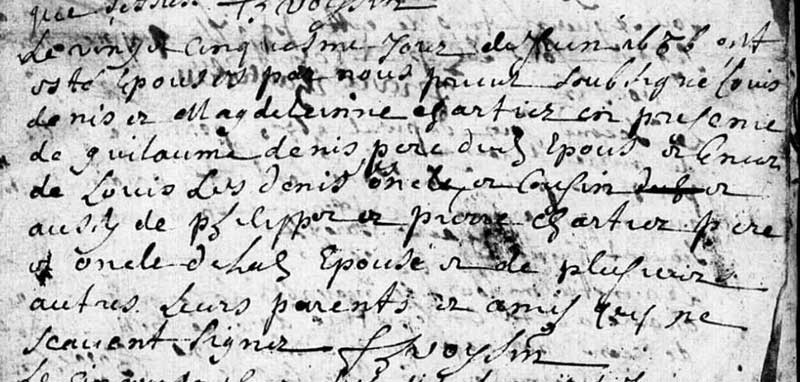 que dessus F. Voysin
Le vingt cinquiesme Jour de Juin 1686 ont
esté Epousés par nous prieur soubsigné Louis
denis et Magdeleinne chartier en presence
de guilaume denis pere dud Epous et encor
de Louis Les denis oncle et Cousin et
aussy de philippe et pierre chartier pere
et oncle de lad Epouse et de plusieurs
autres Leurs parents et amis quy ne
scauent signer F. Voysin